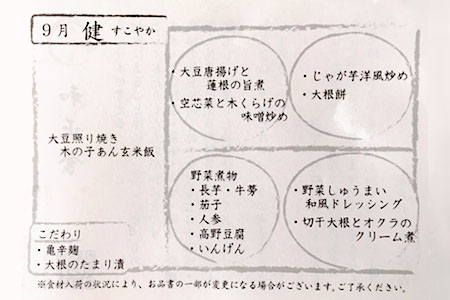 9月 健 すこやか
・大豆唐揚げと
蓮根の旨煮
・空芯菜と木くらげの
味噌炒め
・じゃが芋洋風炒め
・大根餅
大豆照り焼き
木の子あん玄米飯
野菜煮物
・長芋・牛蒡
・茄子
・人参
・高野豆腐
・いんげん
・野菜しゅうまい
和風ドレッシング
・切干大根とオクラの
クリーム煮
こだわり
・亀辛麹
・大根のたまり漬
※食材入荷の状況により、お品書の一部が変更になる場合がございます。ご了承ください。